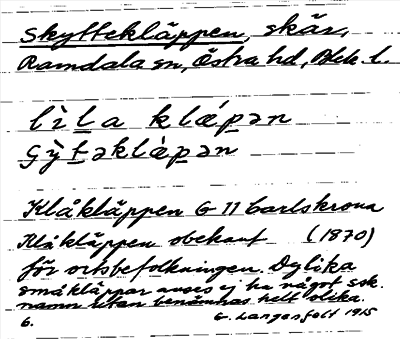 Skyttekläppen, skär,
Ramdala sn, Östra hd, Blek. l.
lìla klǽpən
ʃỳtəklæ̀pən
Klåkläppen G 11 Carlskrona
Klåkläppen obekant (1870)
för ortsbefolkningen. Dylika
småkläppar anses ej ha något sek.
namn utan benämnas helt olika.
6. G. Langenfelt 1915